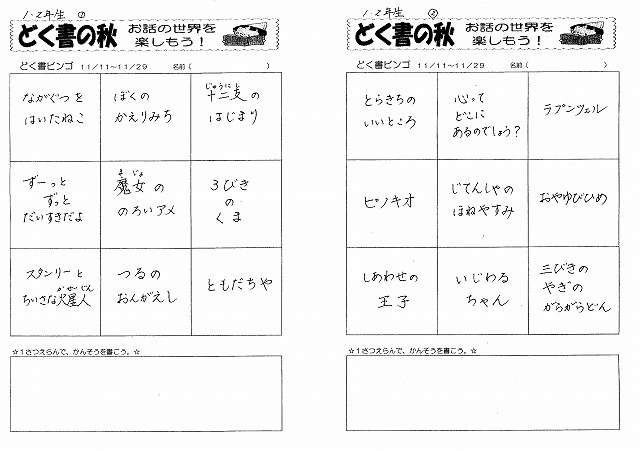 1・2年生 ①
どく書の秋
お話の世界を
楽しもう！
どく書ビンゴ 11/11～11/29 名前（ ）
ながぐつを
はいたねこ
ぼくの
かえりみち
じゅうに
十二支の
はじまり
ずーっと
ずっと
だいすきだよ
まじょ
魔女の
のろいアメ
3びき
の
くま
スタンリーと
かせいじん
ちいさな火星人
つるの
おんがえし
ともだちや
☆1さつえらんで、かんそうを書こう。☆
1・2年生 ②
どく書の秋
お話の世界を
楽しもう！
どく書ビンゴ 11/11～11/29 名前（ ）
とらきちの
いいところ
心って
どこに
あるのでしょう？
ラプンツェル
ピノキオ
じてんしゃの
ほねやすみ
おやゆびひめ
しあわせの
王子
いじわる
ちゃん
三びきの
やぎの
がらがらどん
☆1さつえらんで、かんそうを書こう。☆